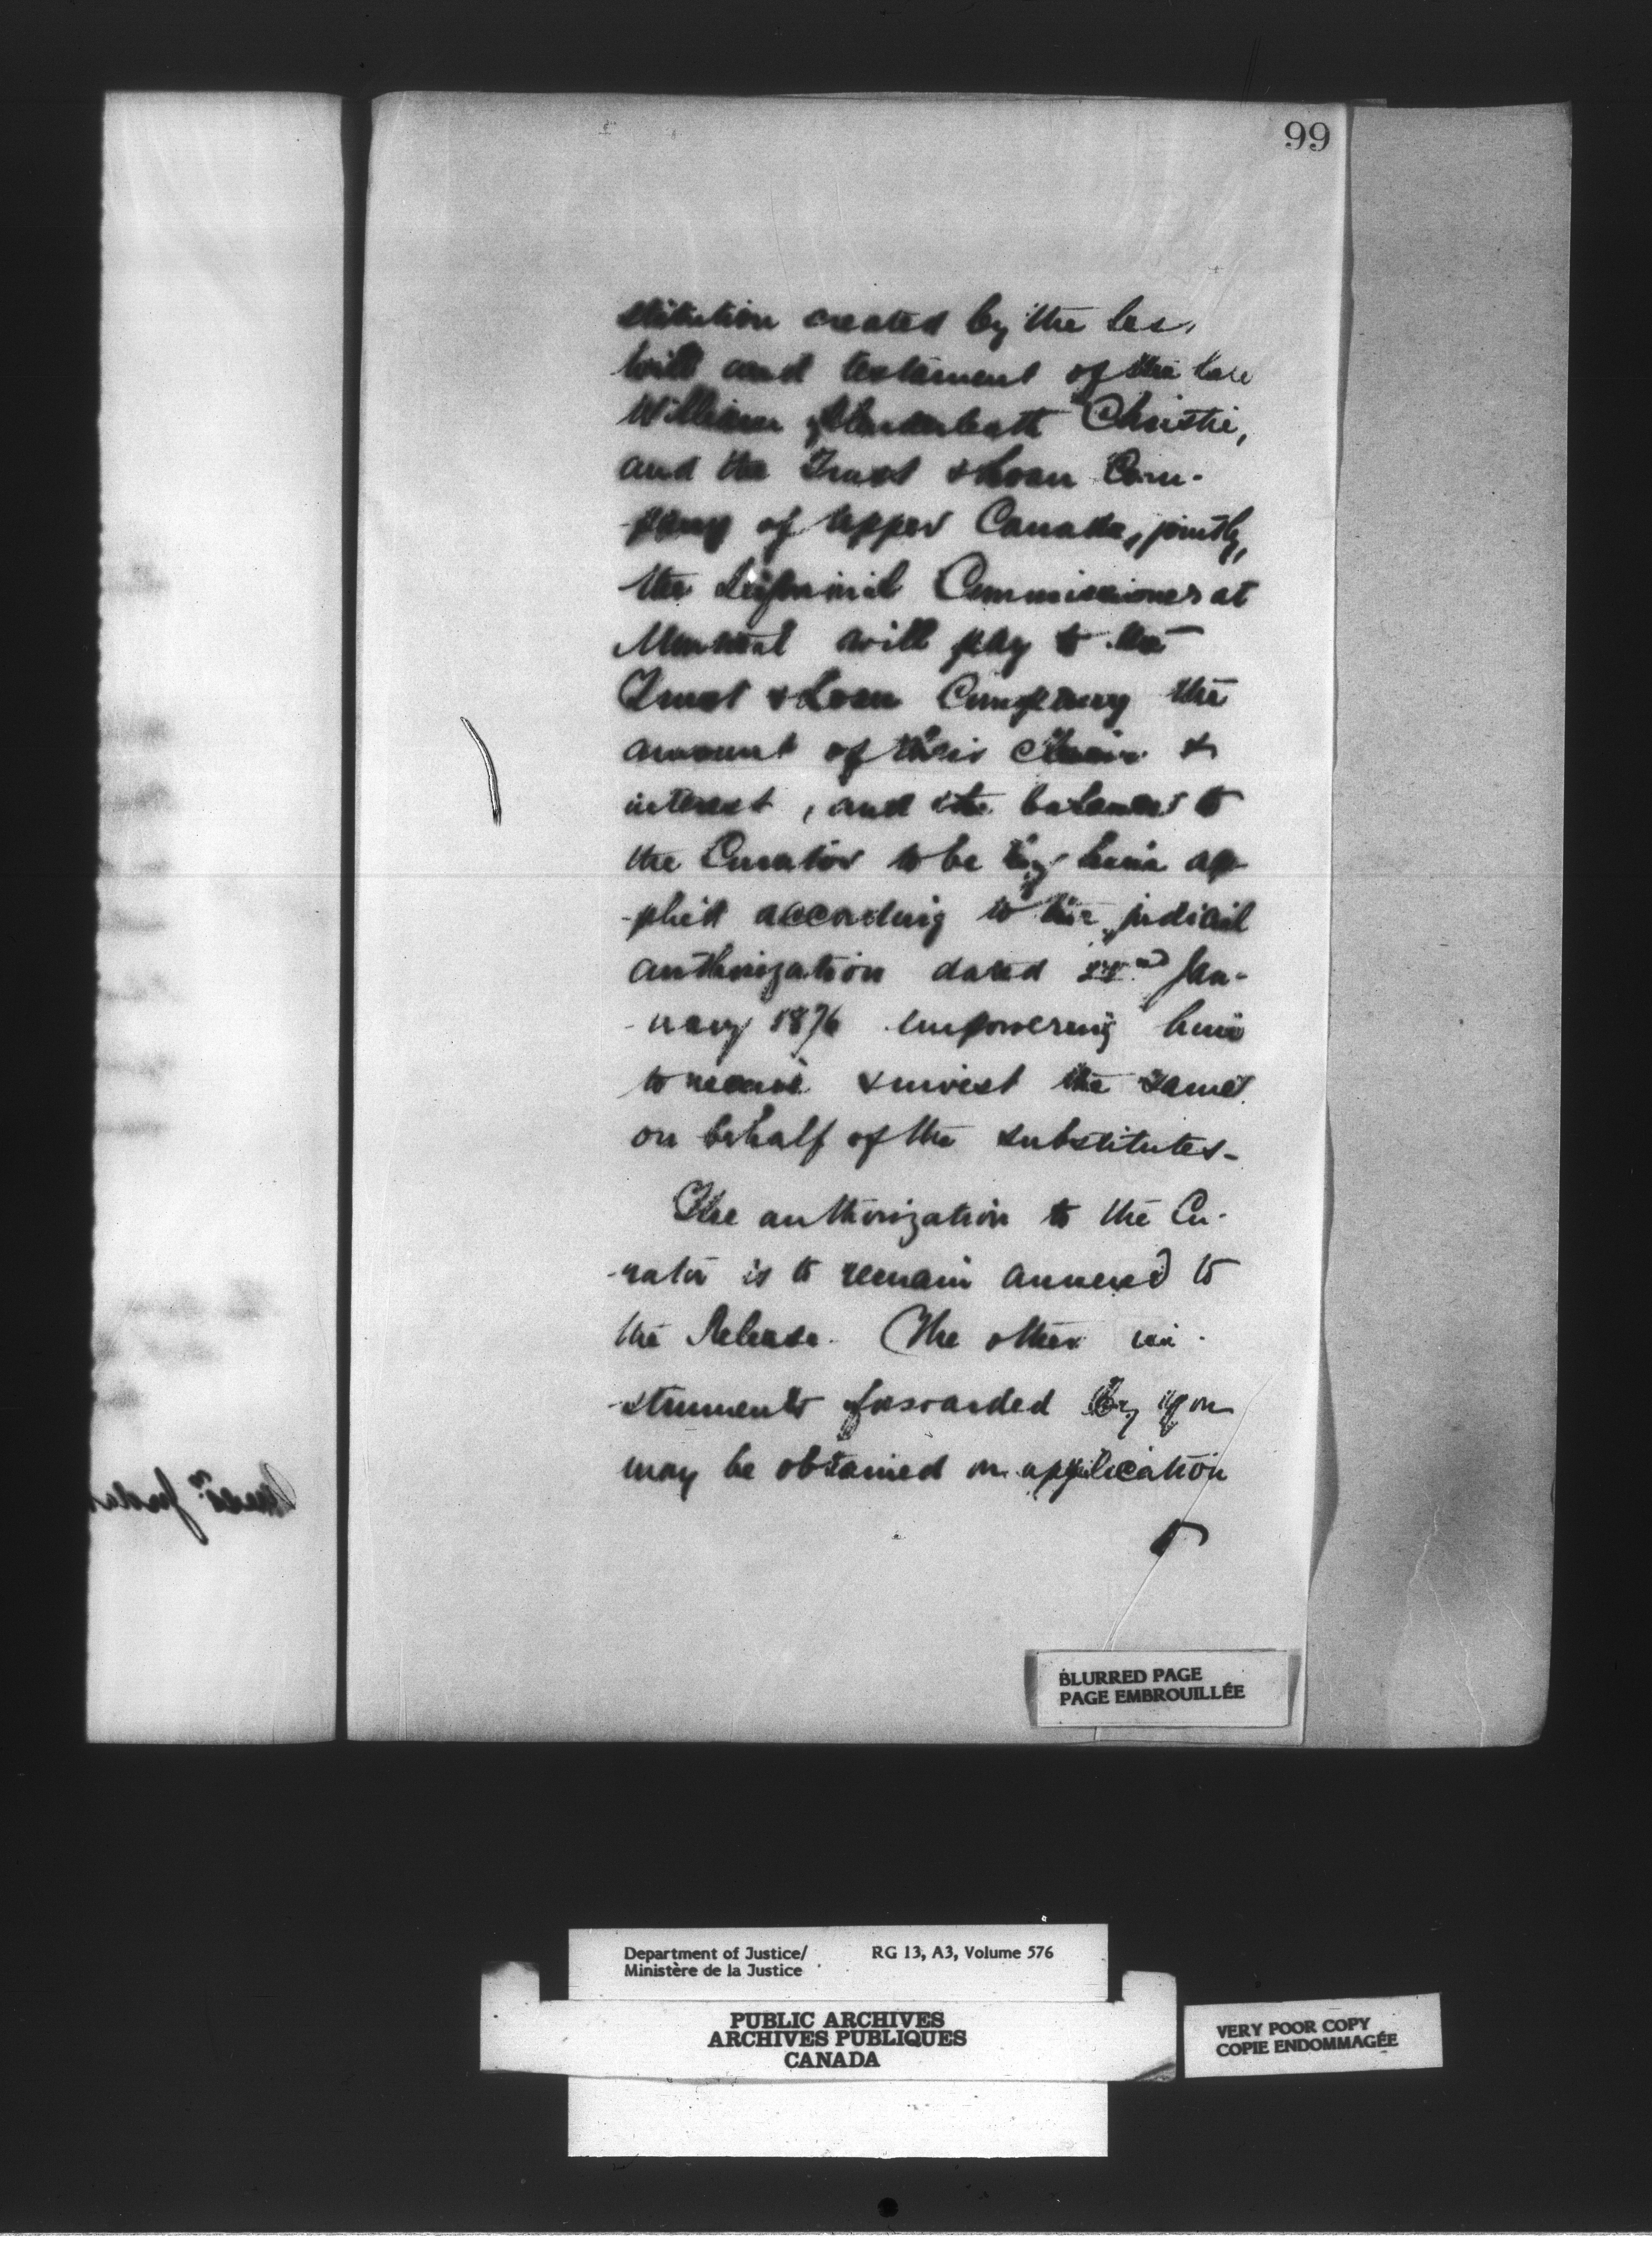 99
stitution created by the las,
will and testament of the late
William Christie,
and the Trust & Loan Com-
-pany of Upper Canada, jointly,
the Seignorial Commissioner at
Montreal will pay to the
Trust & Loan Company the
amount of their claim &
interest, and the balance to
the Curator to be by him ap-
-plied according to his judicial
authorization dated 22nd Jan-
-uary 1876 empowering him
to receive & invest the same
on behalf of the substitutes-
The authorization to the Cu-
-rator is to remain annexed to
the Release. The other in-
-struments forwarded by you
may be obtained on application
BLURRED PAGE
PAGE EMBROUILLÉE
Department of Justice/
Ministère de la Justice
RG 13, A3, Volume 576
PUBLIC ARCHIVES
ARCHIVES PUBLIQUES
CANADA
VERY POOR COPY
COPIE ENDOMMAGÉE